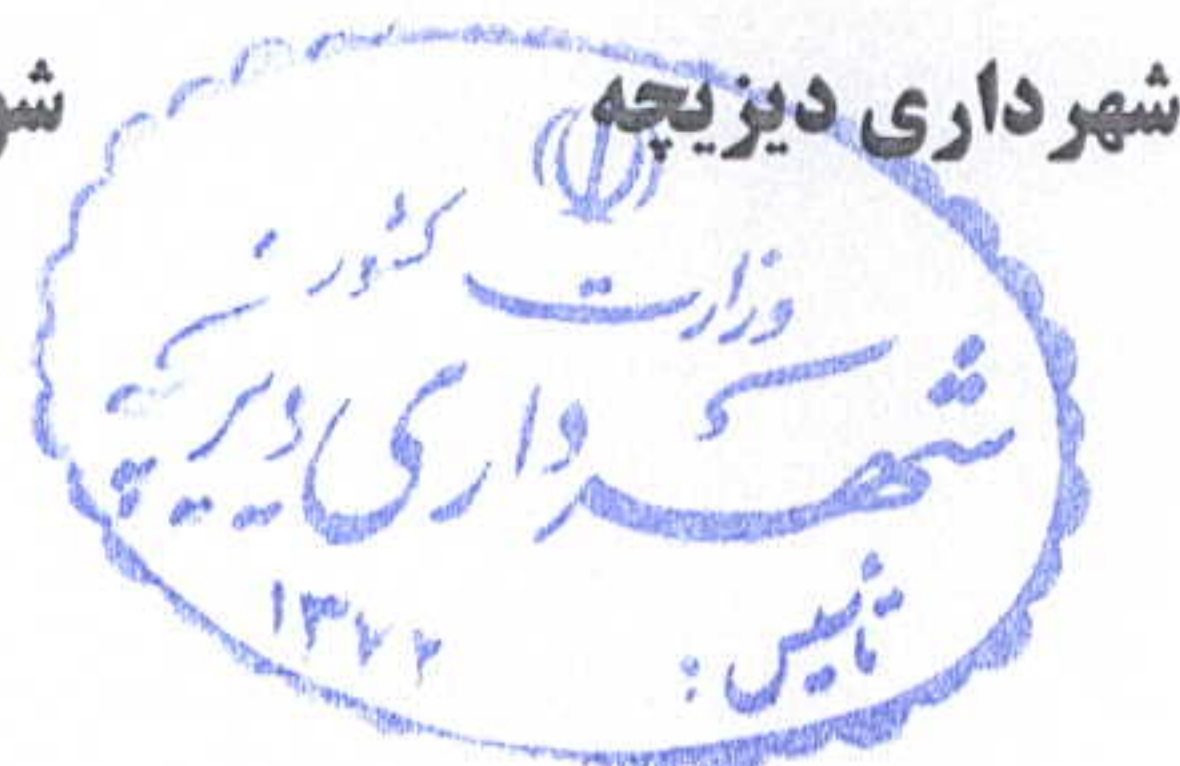 شهرداری دیزیچه
شو
وزارت کشور
شهرداری دیزیچه
تأسیس : ۱۳۷۲